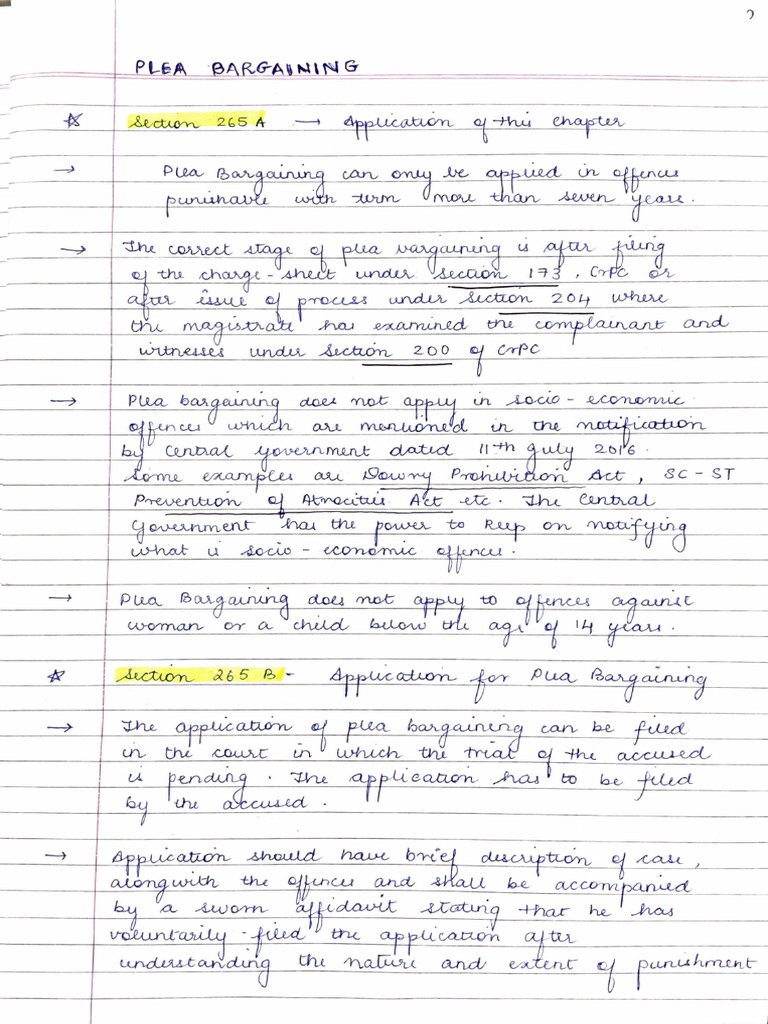 2
PLEA BARGAINING
☆ Section 265 A → Application of this chapter
→ Plea Bargaining can only be applied in offences
punishable with term more than seven years.
→ The correct stage of plea bargaining is after filing
of the charge-sheet under section 173, CrPC or
after issue of process under section 204 where
the magistrate has examined the complainant and
witnesses under Section 200 of CrPC
→ Plea bargaining does not apply in socio-economic
offences which are mentioned in the notification
by Central Government dated 11th July 2016.
Some examples are Dowry Prohibition Act, SC-ST
Prevention of Atrocities Act etc. The Central
Government has the power to keep on notifying
what is socio-economic offences.
→ Plea Bargaining does not apply to offences against
woman or a child below the age of 14 years.
☆ Section 265 B - Application for Plea Bargaining
→ The application of plea bargaining can be filed
in the court in which the trial of the accused
is pending. The application has to be filed
by the accused.
→ Application should have brief description of case,
alongwith the offences and shall be accompanied
by a sworn affidavit stating that he has
voluntarily filed the application after
understanding the nature and extent of punishment